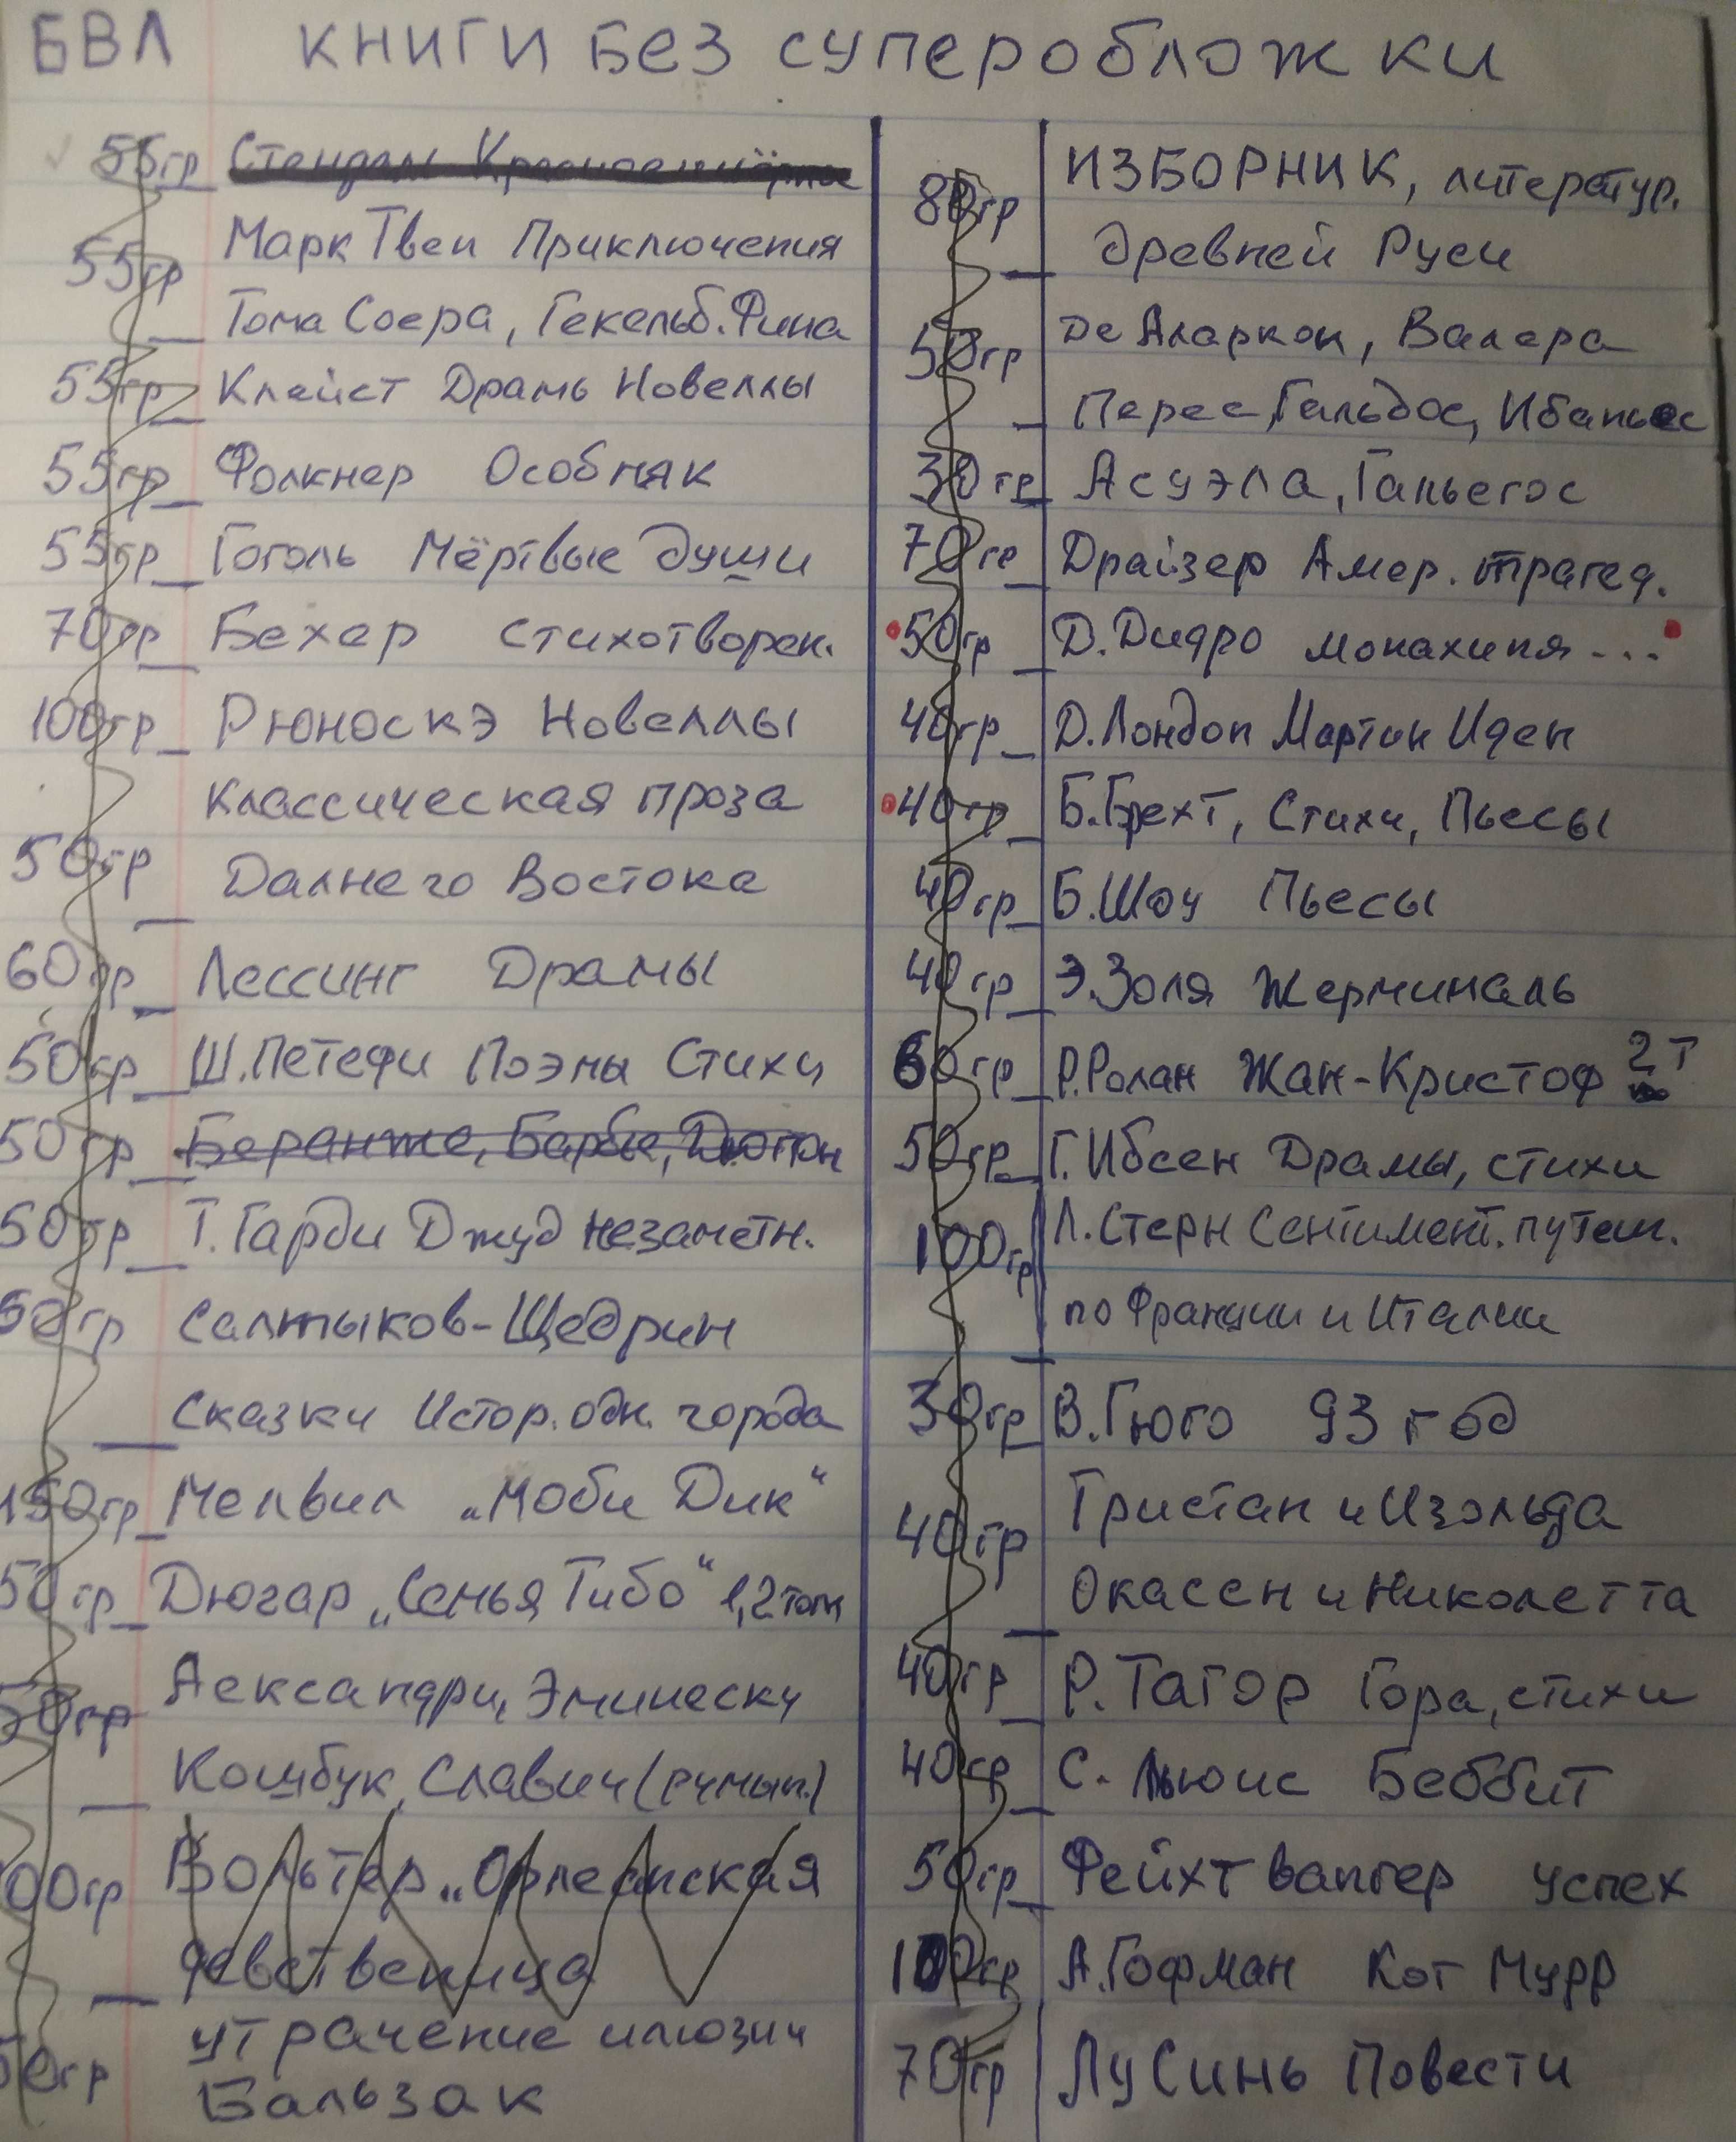 БВЛ КНИГИ БЕЗ СУПЕРОБЛОЖКИ
55гр Стендаль Красное и чёрное
Марк Твен Приключения
55гр
Тома Соера, Гекельб. Фина
55гр Клейст Драмы Новеллы
55гр Фолкнер Особняк
55гр Гоголь Мёртвые души
70гр Бехер стихотворен.
100гр Рюноскэ Новеллы
Классическая проза
50гр Далнего Востока
60гр Лессинг Драмы
50гр Ш.Петефи Поэмы Стихи
50гр Беранже, Барбье, Дюпон
50гр Т. Гарди Джуд незаметн.
50гр Салтыков-Щедрин
Сказки Истор. одн. города
150гр Мелвил „Моби Дик“
50гр Дюгар „Семья Тибо“ 1,2 том
Аександри, Эминеску
50гр
Кошбук, Славич (румын.)
Вольтер „Орлеанская
00гр
девственица
утрачение илюзии
50гр
Бальзак
ИЗБОРНИК, литератур.
80гр
древней Руси
Де Аларкон, Валера
50гр
Перес Гальдос, Ибаньес
30гр Асуэла, Гальегос
70гр Драйзер Амер. трагед.
50гр Д. Дидро монахиня...
40гр Д. Лондон Мартин Иден
40гр Б. Брехт, Стихи, Пьесы
40гр Б. Шоу Пьесы
40гр Э. Золя Жерминаль
60гр Р. Ролан Жан-Кристоф 2 т
50гр Г. Ибсен Драмы, стихи
100гр Л. Стерн Сентимент. путеш.
по Франции и Италии
30гр В. Гюго 93 год
Тристан и Изольда
40гр
Окасен и Николетта
40гр Р. Тагор Гора, стихи
40гр С. Льюис Беббит
50гр Фейхтвангер успех
100гр А. Гофман Кот Мурр
70гр Лу Синь Повести